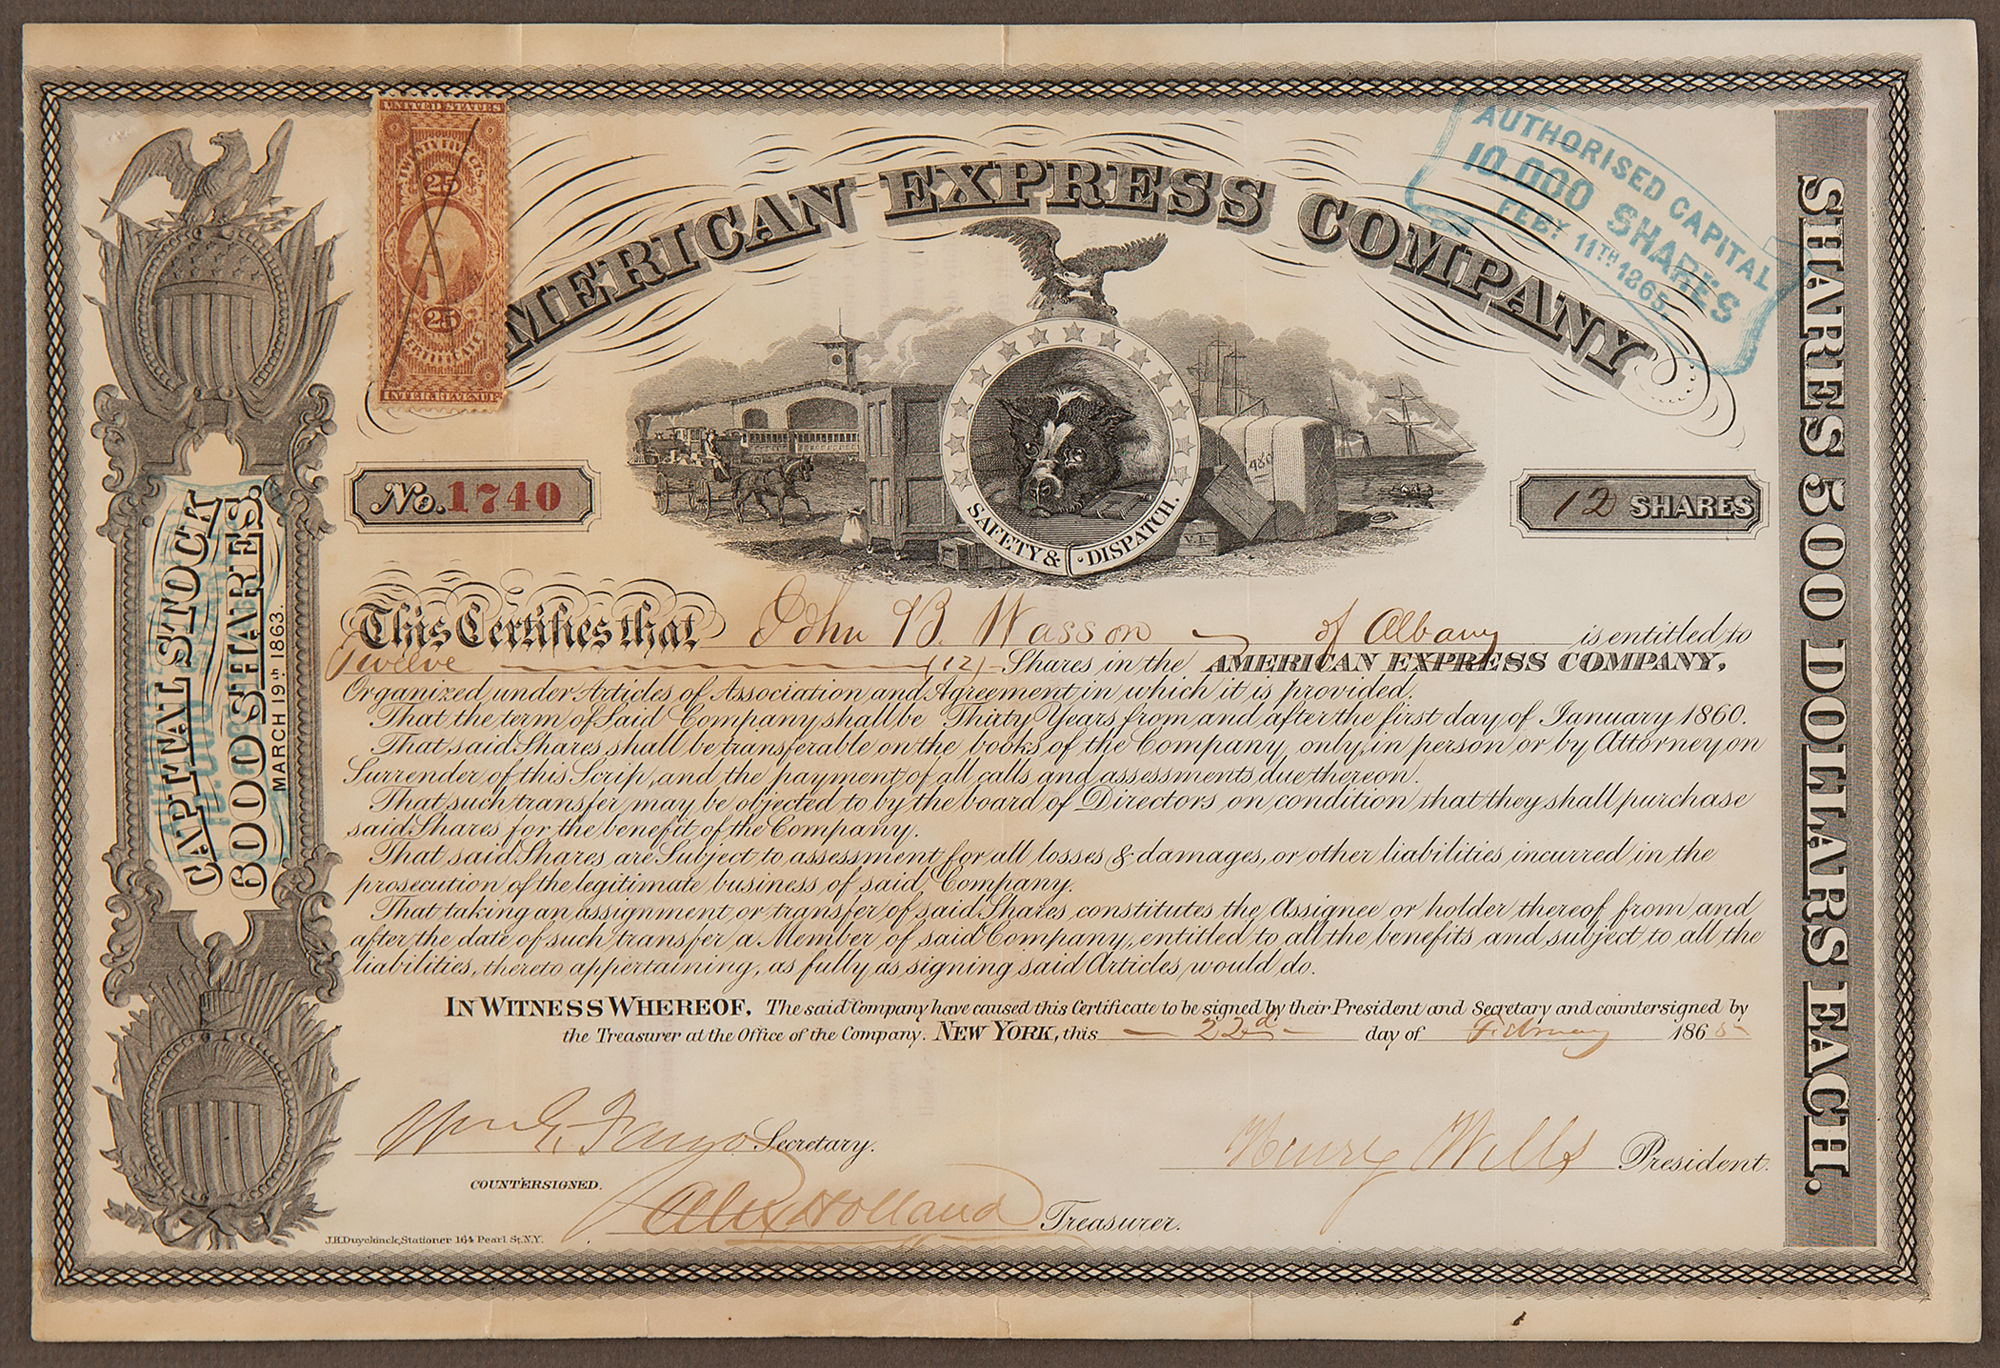 UNITED STATES
TWENTY FIVE CTS.
25
25
CERTIFICATE
INTER. REVENUE
AMERICAN EXPRESS COMPANY
AUTHORISED CAPITAL
10.000 SHARES
FEBY 11TH 1865.
No. 1740
480
SAFETY & DISPATCH.
12 SHARES
CAPITAL STOCK
6000 SHARES.
MARCH 19th 1863.
SHARES 500 DOLLARS EACH.
This Certifies that John B. Wasson of Albany is entitled to
Twelve (12) Shares in the AMERICAN EXPRESS COMPANY,
Organized under Articles of Association and Agreement in which it is provided.
That the term of Said Company shall be Thirty Years from and after the first day of January 1860.
That said Shares shall be transferable on the books of the Company, only, in person or by Attorney on
Surrender of this Scrip, and the payment of all calls and assessments due thereon.
That such transfer may be objected to by the board of Directors on condition that they shall purchase
said Shares for the benefit of the Company.
That said Shares are Subject to assessment for all losses & damages, or other liabilities incurred in the
prosecution of the legitimate business of said Company.
That taking an assignment or transfer of said Shares constitutes the Assignee or holder thereof from and
after the date of such transfer a Member of said Company, entitled to all the benefits and subject to all the
liabilities, thereto appertaining, as fully as signing said Articles would do.
IN WITNESS WHEREOF, The said Company have caused this Certificate to be signed by their President and Secretary and countersigned by
the Treasurer at the Office of the Company. NEW YORK, this 22d day of February 1865
Wm G. Fargo Secretary.
Henry Wells President.
COUNTERSIGNED.
Alex Holland Treasurer.
J.H.Duyckinck, Stationer 164 Pearl St. N.Y.